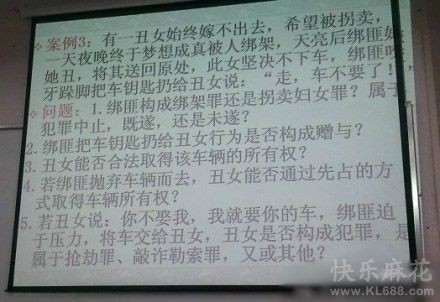 案例3：有一丑女始终嫁不出去，希望被拐卖，
一天夜晚终于梦想成真被人绑架，天亮后绑匪嫌
她丑，将其送回原处，此女坚决不下车，绑匪
牙跺脚把车钥匙扔给丑女说：“走，车不要了！
问题：1.绑匪构成绑架罪还是拐卖妇女罪？属于
犯罪中止，既遂，还是未遂？
2.绑匪把车钥匙扔给丑女行为是否构成赠与？
3.丑女能否合法取得该车辆的所有权？
4.若绑匪抛弃车辆而去，丑女能否通过先占的方
式取得车辆所有权？
5.若丑女说：你不娶我，我就要你的车，绑匪迫
于压力，将车交给丑女，丑女是否构成犯罪，是
属于抢劫罪、敲诈勒索罪，又或其他？
快乐麻花
www.KL688.com